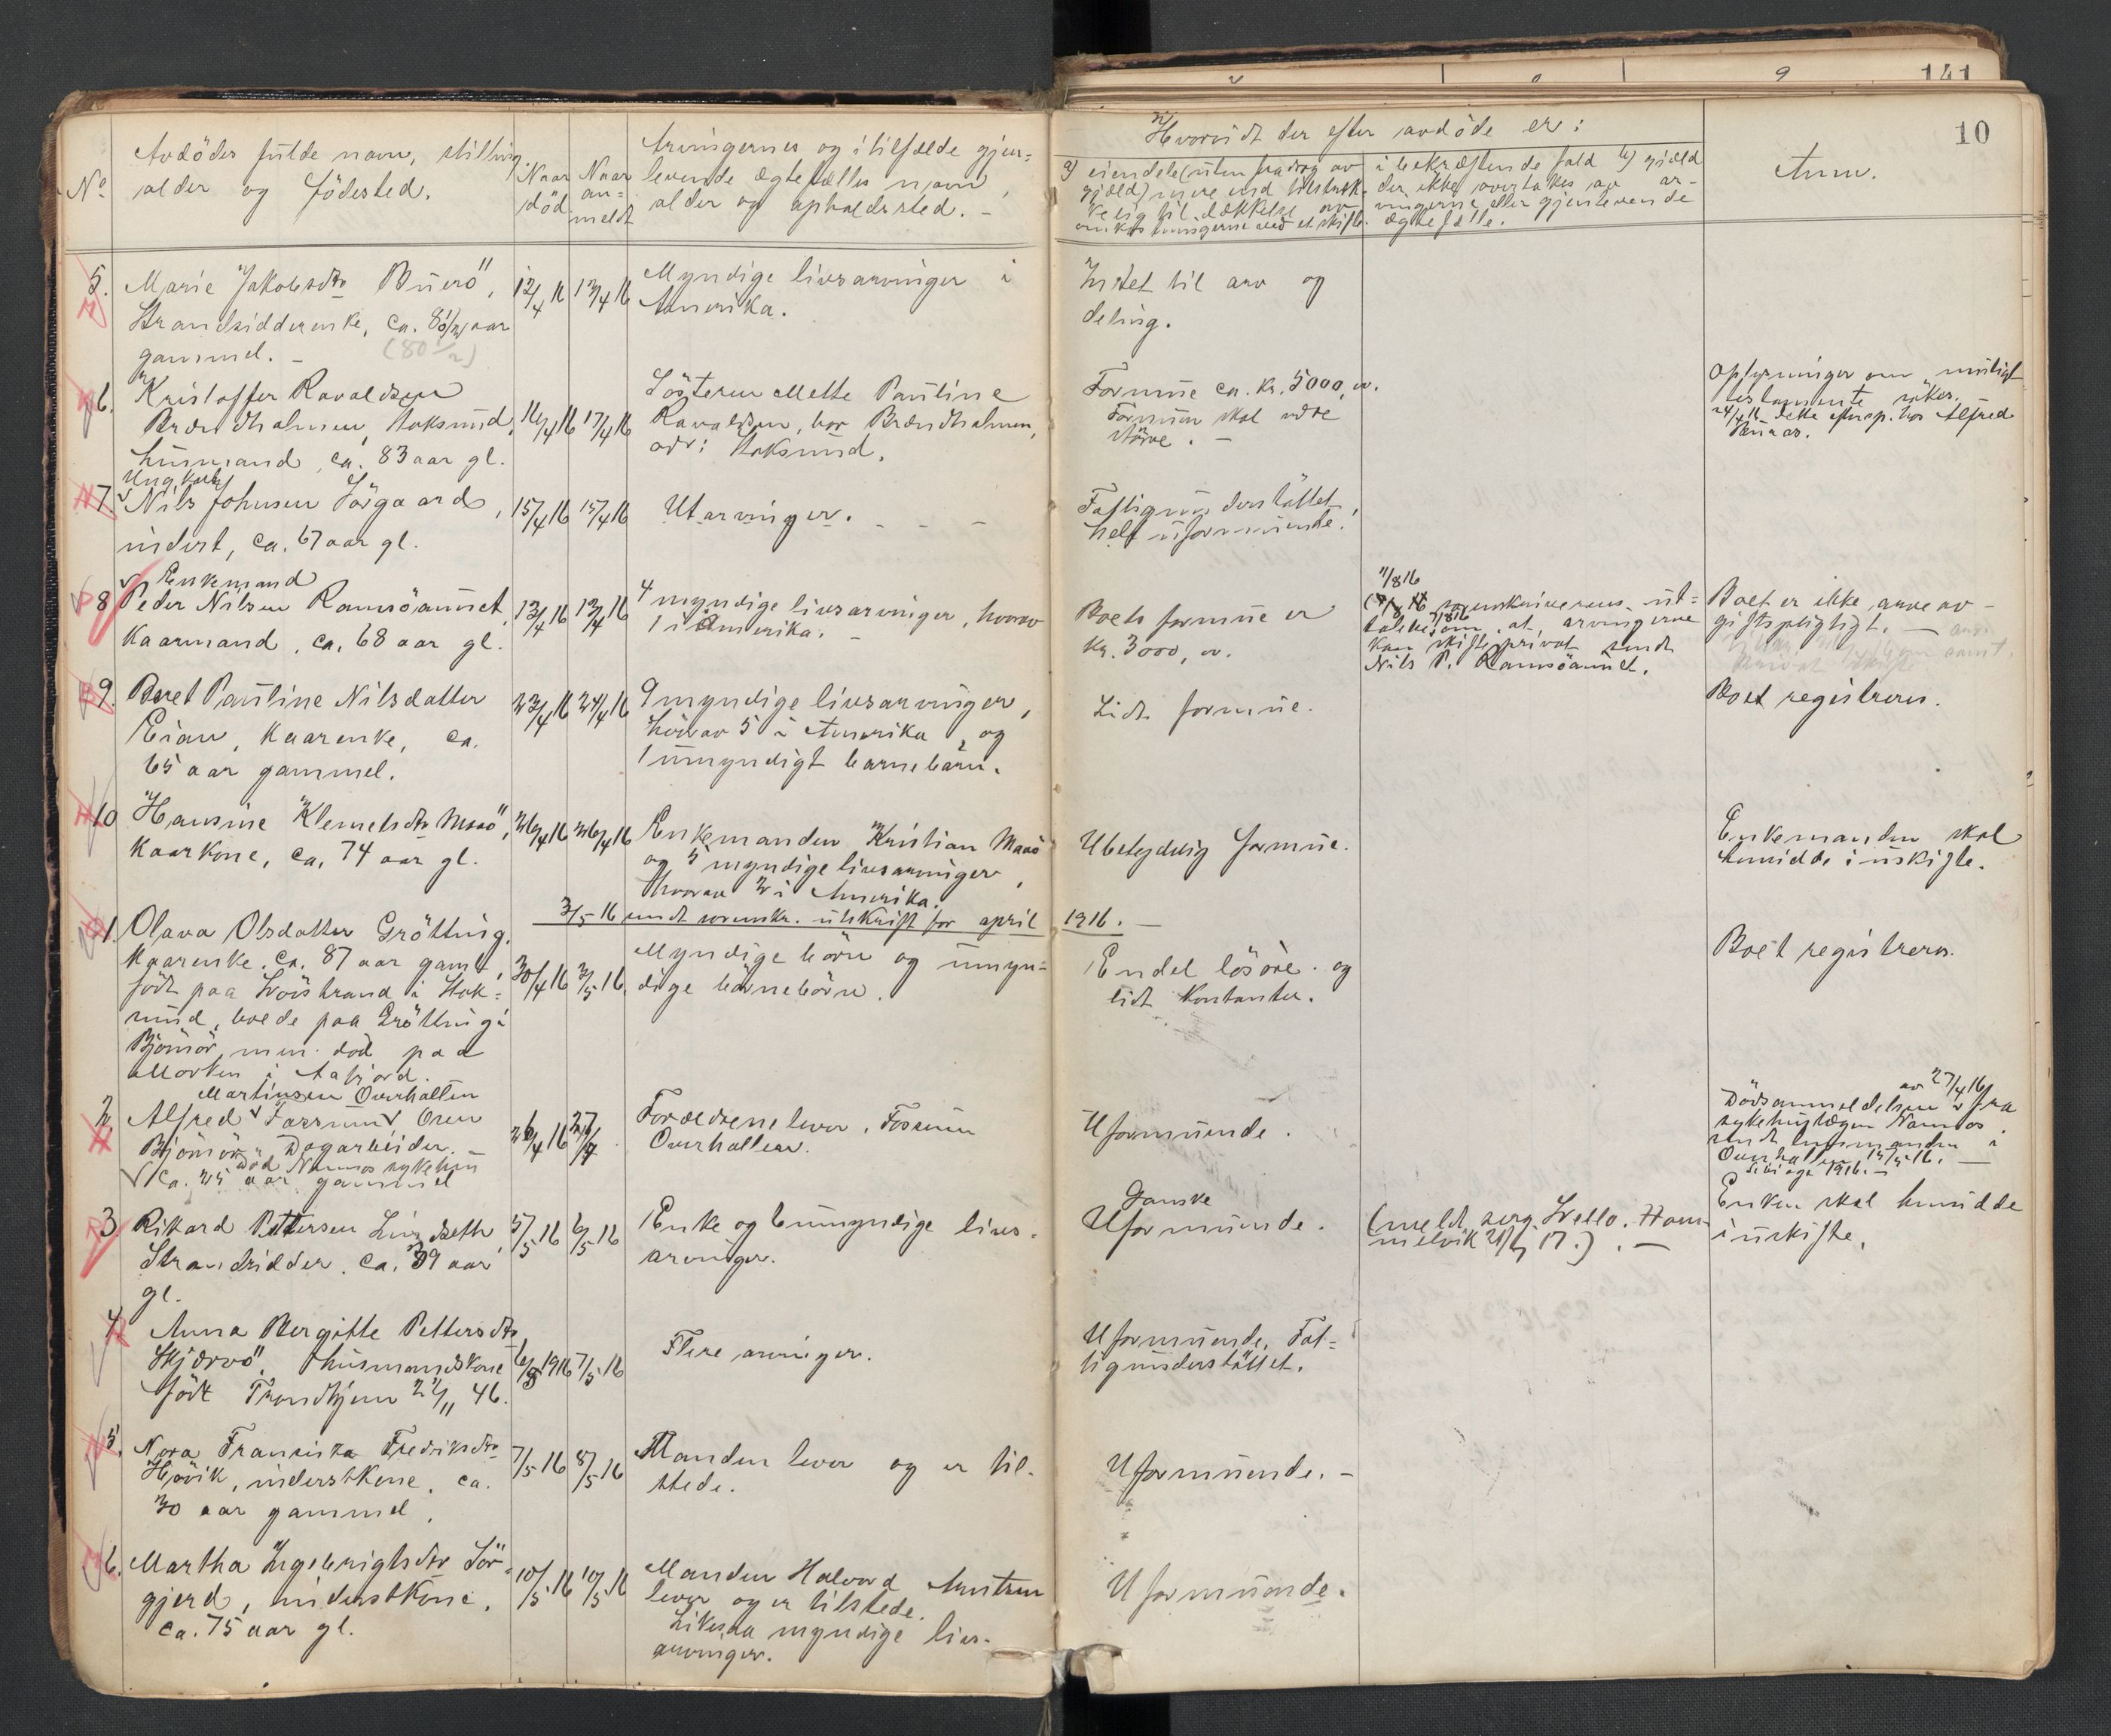 141
10
No
Avdödes fulde navn, stilling
alder og födested.
Naar
död
Naar
an=
meldt
Arvingernes og i tilfælde gjen=
levende ægtefælles navn,
alder og opholdssted. -
Hvorvidt der efter avdöde er:
a) eiendele (uten fradrag av
gjæld) mere end tilstræk-
kelig til dækkelse av
omkostningerne ved et skifte.
i bekræftende fald b) gjæld
der ikke overtakes av ar-
vingerne eller gjenlevende
ægtefælle.
Anm.
5. Marie Jakobsdtr Buerö,
Strandsidderenke, ca. 80 1/2 aar
gammel. - (80 1/2)
12/4 16
13/4 16
Myndige livsarvinger i
Amerika.
Intet til arv og
deling.
6. Kristoffer Ravaldsen
Brændholmen, Stoksund,
husmand, ca. 83 aar gl.
16/4 16
17/4 16
Sösteren Mette Pauline
Ravaldsen, bor Brændholmen,
adr: Stoksund.
Formue ca. kr. 5000,00.
Formuen skal være
större. -
Oplysninger om muligt
testamente sökes.
24/4 16 dette eftersp. hos Alfred
7. Ungkarl
Nils Johnsen Sörgaard,
inderst, ca. 67 aar gl.
15/4 16
15/4 16
Utarvinger. - - -
Fattigunderstöttet,
helt uformuende.
8 Enkemand
Peder Nilsen Ramsöaunet,
Kaarmand, ca. 68 aar gl.
13/4 16
13/4 16
4 myndige livsarvinger, hvorav
1 i Amerika. -
Boets formue er
kr. 3000,00.
11/8 16
sorenskriverens ut=
talelse om at arvingerne
kan skifte privat sendt
Nils P. Ramsöaunet.
Boet er ikke arveav-
giftspligtigt. -
9. Beret Pauline Nilsdatter
Eian, Kaarenke, ca.
65 aar gammel.
23/4 16
24/4 16
9 myndige livsarvinger,
hvorav 5 i Amerika, og
1 umyndigt barnebarn.
Lidt formue.
Boet registreres.
10 Hansine Klemetsdtr Masö,
Kaarkone, ca. 74 aar gl.
26/4 16
26/4 16
Enkemanden Kristian Masö
og 5 myndige livsarvinger,
hvorav 2 i Amerika.
Ubetydelig formue.
Enkemanden skal
hensidde i uskifte.
3/5 16 sendt sorenskr. utskrift for april 1916. -
1. Olava Olsdatter Grötting.
Kaarenke. ca. 87 aar gaml,
födt paa Revöistrand i Stok=
sund, boede paa Grötting i
Björnör, men död paa
Morken i Aafjord.
30/4 16
3/5 16.
Myndige börn og umyn=
dige barnebörn.
Endel lösöre og
lidt kontanter.
Boet registreres.
2. Martinsen Overhallen
Alfred Fossum Osen
Björnör. Dagarbeider.
död Namsos sykehus
ca. 25 aar gammel
26/4 16
27/4
Forældrene lever, Fossum
Overhallen.
Uformuende.
Dödsanmeldelsen av 27/4 16 fra
sykehuslægen Namsos.
sendt lensmanden i
Overhallen 15/5 16. -
3. Rikard Pettersen Lingseth
Strandsidder. ca. 39 aar
gl.
5/5 16
6/5 16
Enke og 6 umyndige livs-
arvinger.
Ganske
Uformuende.
Enken skal hensidde
i uskifte.
4. Anna Bergitte Pettersdtr
Skjærvö, husmandskone
födt Trondhjem 22/11 46.
6/5 1916
7/5 16
Flere arvinger.
Uformuende. Fat=
tigunderstöttet.
5. Nora Fransiska Fredriksdtr
Hövik, inderstkone, ca.
30 aar gammel.
7/5 16
8/5 16
Manden lever og er til-
stede.
Uformuende. -
6. Martha Ingebrigtsdtr Sör-
gjerd, inderstkone.
ca. 75 aar gl.
10/5 16
10/5 16
Manden Halvard Arntsen
lever og er tilstede.
Likesaa myndige livs-
arvinger.
Uformuende.